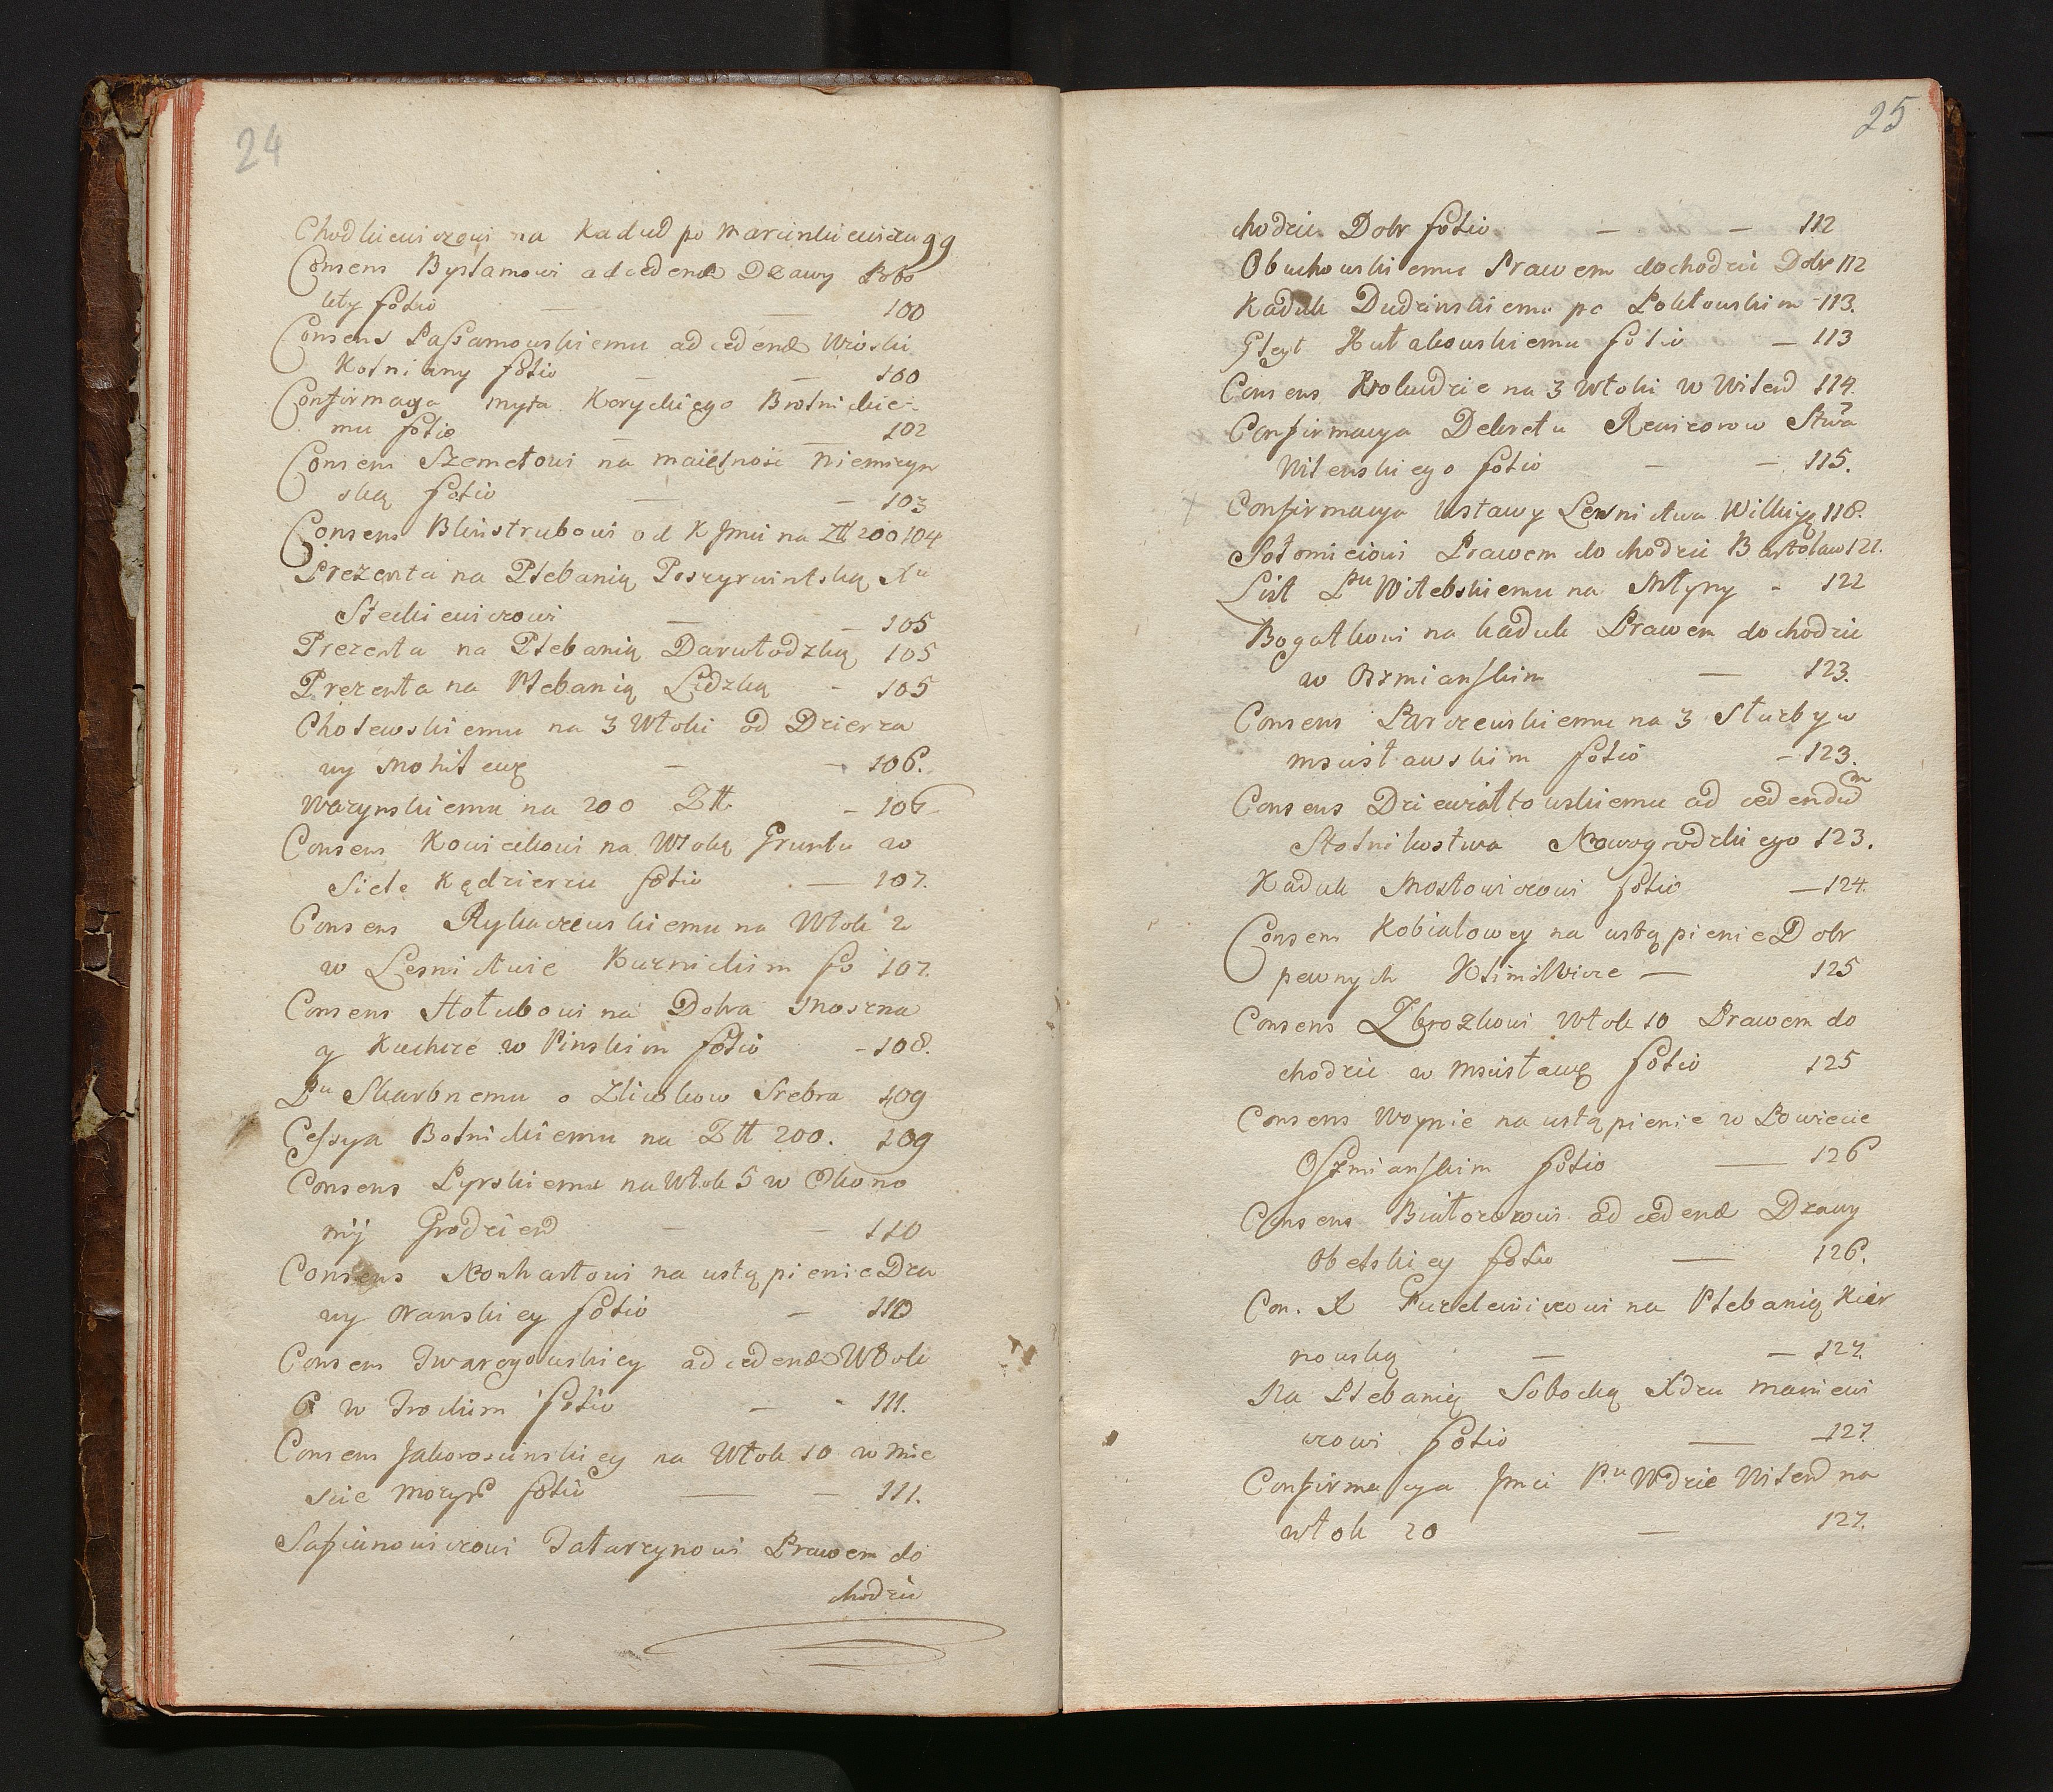 24
Chodkiewiczowi na Kaduk po Marcinkiewiczu 99
Consens Bystamowi ad cedend Dzawy Pobo
lety folio — — 100
Consens Passamowskiemu ad cedend Wioski
Kotniany folio — — 100
Confirmacya myta Koryckiego Brotnickie-
mu folio — — 102
Consens Szemetowi na maiętnosc Niemczyn
ską folio — — 103
Consens Blinstrubowi od K Jmci na Ztt 200 104
Prezenta na Plebanią Poszyrwintską Xu
Steckiewiczowi — — 105
Prezenta na Plebanią Darwłodzką 105
Prezenta na Plebanią Lidzką - 105
Chotewskiemu na 3 Włoki od Dzierza
wy Mohilewę — — 106.
Warynskiemu na 200 Ztt. — 106
Consens Kowickowi na Włokę Gruntu w
Siele Kędzierzu folio — 107.
Consens Rykaczewskiemu na Włok 2
w Lesnictwie Kuznickim fo 107.
Consens Hołubowi na Dobra Moszna
y Kuchcze w Pinskim folio - 108.
Pu Skarbnemu o Zliwkow Srebra 109
Cessya Botnickiemu na Ztt 200. 109
Consens Pyrskiemu na Włok 5 w Ekono
mij Grodzien — — 110
Consens Monhartowi na ustąpienie Dza
wy Oranskiey folio — 110
Consens Twarogowskiey ad cedend Włok
6 w Trockim folio — - 111.
Consens Jakowoscinskiey na Włok 10 w Mie
scie Mozyr folio — — 111.
Safianowiczowi Tatarzynowi Prawem do
chodzic
25
chodzic Dobr folio — — 112
Obuchowskiemu Prawem dochodzic Dobr 112
Kaduk Dudzinskiemu po Połttowskim - 113.
Gleyt Hutakowskiemu folio — 113
Consens Wolwdzie na 3 Włoki w Witend 114.
Confirmacya Dekretu Rewizorow Stwa
Witenskiego folio — — 115.
x Confirmacya Ustawy Lesnictwa Wilkiyę 118.
Sołomieiowi Prawem dochodzic Bartołtaw 121.
List Pu Witebskiemu na Młyny - 122
Bogatkowi na kaduk Prawem dochodzic
w Oszmianskim — 123.
Consens Parczewskiemu na 3 Słuzby w
Mscisławskim folio - 123.
Consens Dziewiałtowskiemu ad cedendum
Stolnikostwa Nowogrodzkiego 123.
Kaduk Mostowiczowi folio — 124.
Consens Kobiatowey na ustąpienie Dobr
pewnych Klimowicze — 125
Consens Zbrozkowi Włok 10 Prawem do
chodzic w Mscisławę folio 125
Consens Woynie na ustąpienie w Powiecie
Oszmianskim folio — 126
Consens Białozorowi ad cedend Dzawy
Obelskiey folio — 126.
Con. X Gurdewiczowi na Plebanią Kier
nowską — — 127.
Na Plebanią Sobocką Xdzu Maniewi
czowi folio — 127.
Confirmacya Jmci Pu Wdzie Witend na
włok 20 — 127.